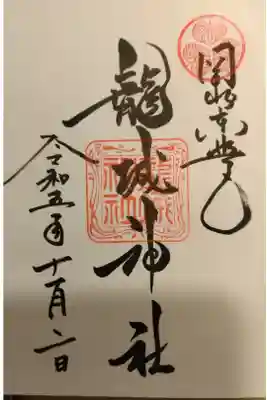 岡崎東照宮
龍城神社
令和五年十月日